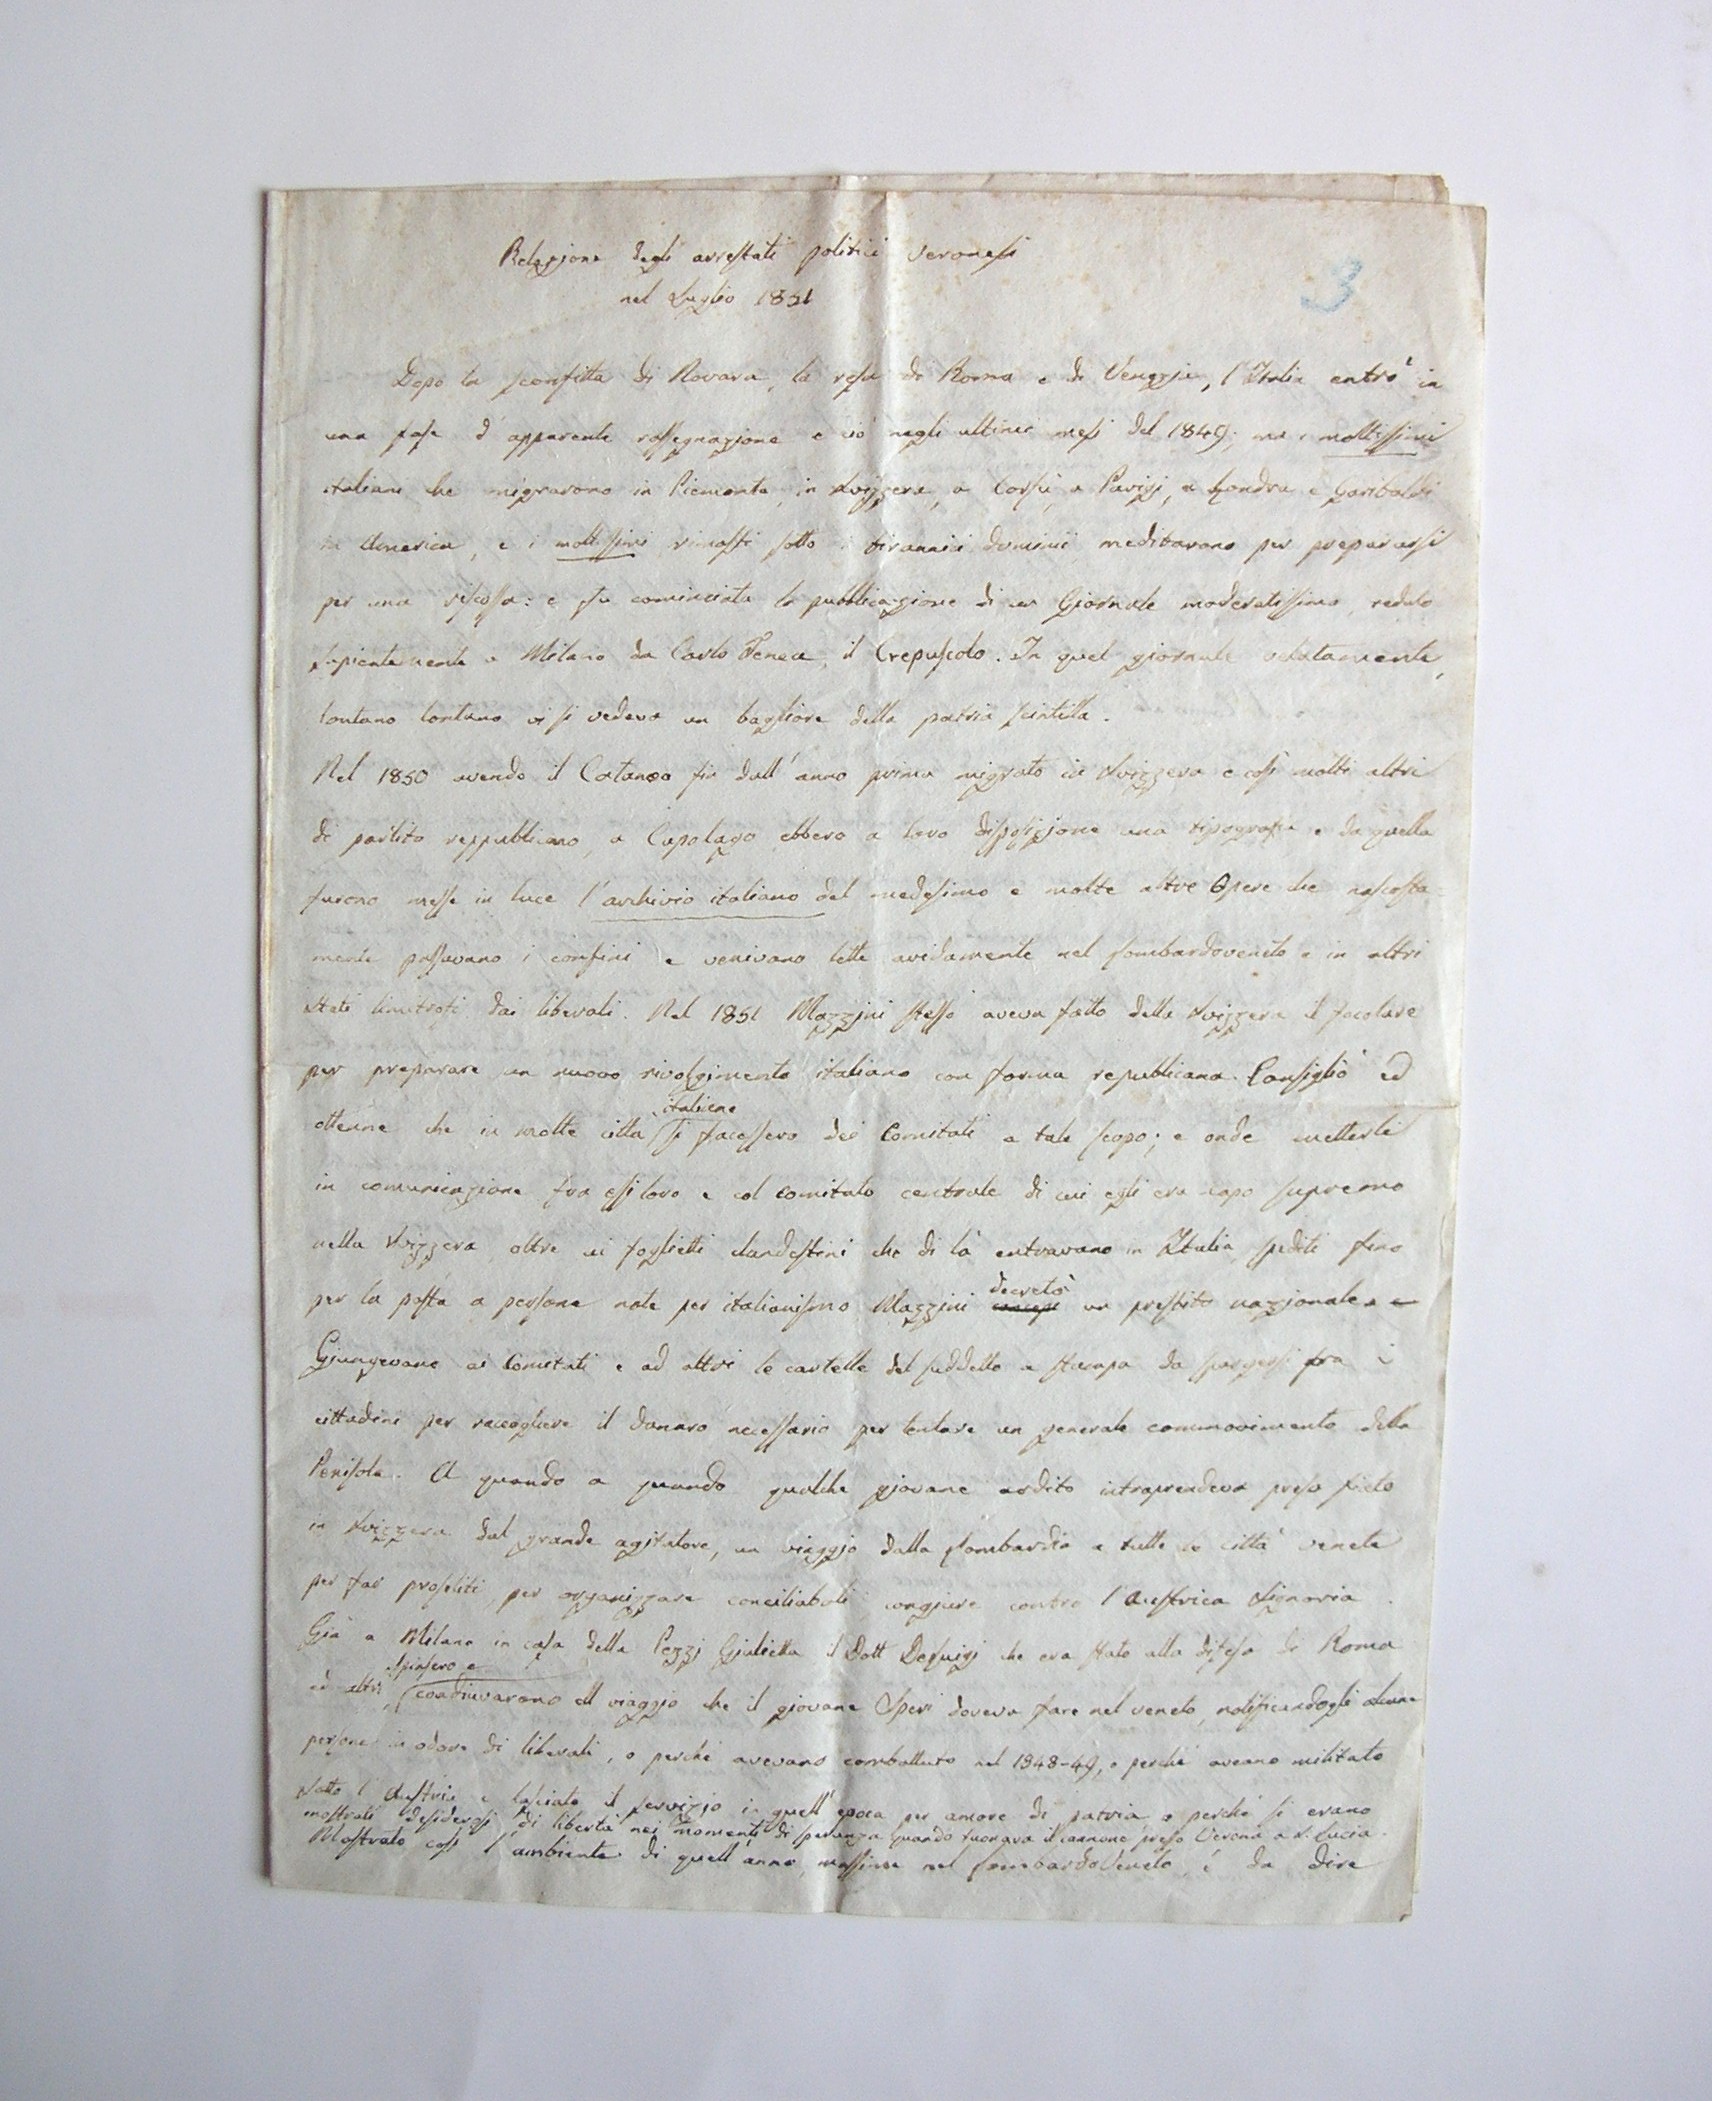 Relazione degli arrestati politici veronesi
nel Luglio 1851
3
Dopo la sconfitta di Novara, la resa di Roma e di Venezia, l'Italia entrò in
una fase d'apparente rassegnazione e ciò negli ultimi mesi del 1849; ma i moltissimi
italiani che migrarono in Piemonte, in Svizzera, a Corfù, a Parigi, a Londra e Garibaldi
in America, e i moltissimi rimasti sotto i tirannici dominii meditarono per prepararsi
per una riscossa: e fu cominciata la pubblicazione di un Giornale moderatissimo, redato
sapientemente a Milano da Carlo Tenca, il Crepuscolo. In quel giornale velatamente,
lontano lontano vi si vedeva un bagliore della patria scintilla.
Nel 1850 avendo il Cataneo fin dall'anno prima migrato in Svizzera e così molti altri
di partito reppublicano, a Capolago ebbero a loro disposizione una tipografia e da quella
furono messe in luce l'archivio italiano del medesimo e molte altre Opere che nascosta-
mente passavano i confini e venivano lette avidamente nel Lombardoveneto e in altri
Stati limitrofi dai liberali. Nel 1851 Mazzini stesso aveva fatto della Svizzera il focolare
per preparare un nuovo rivolgimento italiano con forma republicana. Consigliò ed
italiane
ottenne che in molte città si facessero dei Comitati a tale scopo; e onde metterli
in comunicazione fra essi loro e col comitato centrale di cui egli era capo supremo
nella Svizzera, oltre ai foglietti clandestini che di là entravano in Italia, spediti fino
decretò
per la posta a persone note per italianismo Mazzini un prestito nazionale
Giungevano ai Comitati e ad altri le cartelle del suddetto a stampa da spargersi fra i
cittadini per raccogliere il danaro necessario per tentare un generale commovimento della
Penisola. A quando a quando qualche giovane ardito intraprendeva preso fiato
in Svizzera dal grande agitatore, un viaggio dalla Lombardia a tutte le città venete
per far proseliti, per organizzare conciliaboli congiure contro l'Austrica Signoria.
Già a Milano in casa della Pezzi Giulietta il Dott Deluigi che era stato alla difesa di Roma
spinsero e
ed altri coadiuvarono il viaggio che il giovane Speri doveva fare nel veneto, notificandogli alcune
persone in odore di liberali, o perchè avevano combattuto nel 1848-49, o perchè aveano militato
sotto l'Austria e lasciato il servizio in quell'epoca per amore di patria o perchè si erano
mostrati desiderosi di libertà nei momenti di speranza quando tuonava il cannone preso Verona a S. Lucia.
Mostrato così l'ambiente di quell'anno, massime nel LombardoVeneto, è da dire